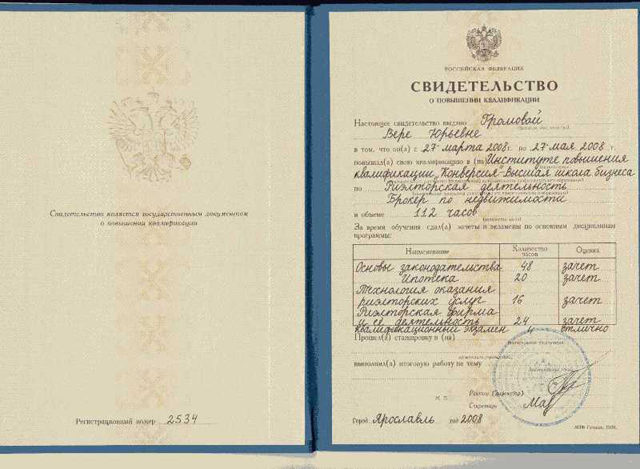 Свидетельство является государственным документом
о повышении квалификации
Регистрационный номер 2534
РОССИЙСКАЯ ФЕДЕРАЦИЯ
СВИДЕТЕЛЬСТВО
О ПОВЫШЕНИИ КВАЛИФИКАЦИИ
Настоящее свидетельство выдано Громовой
Вере Юрьевне
в том, что он(а) с 27 марта 2008 г. по 27 мая 2008 г.
повышал(а) свою квалификацию в (на) Институте повышения
квалификации "Конверсия-Высшая школа бизнеса
по Риэлторская деятельность
Брокер по недвижимости
в объеме 112 часов
За время обучения сдал(а) зачеты и экзамены по основным дисциплинам
программы:
Наименование Количество часов Оценка
Основы законодательства 48 зачет
Ипотека 20 зачет
Технология оказания
риэлторских услуг 16 зачет
Риэлторская фирма
и её деятельность 24 зачет
квалификационный экзамен 4 отлично
Прошел(а) стажировку в (на)
выполнил(а) итоговую работу на тему
М. П.
Ректор
Секретарь
Город Ярославль год 2008